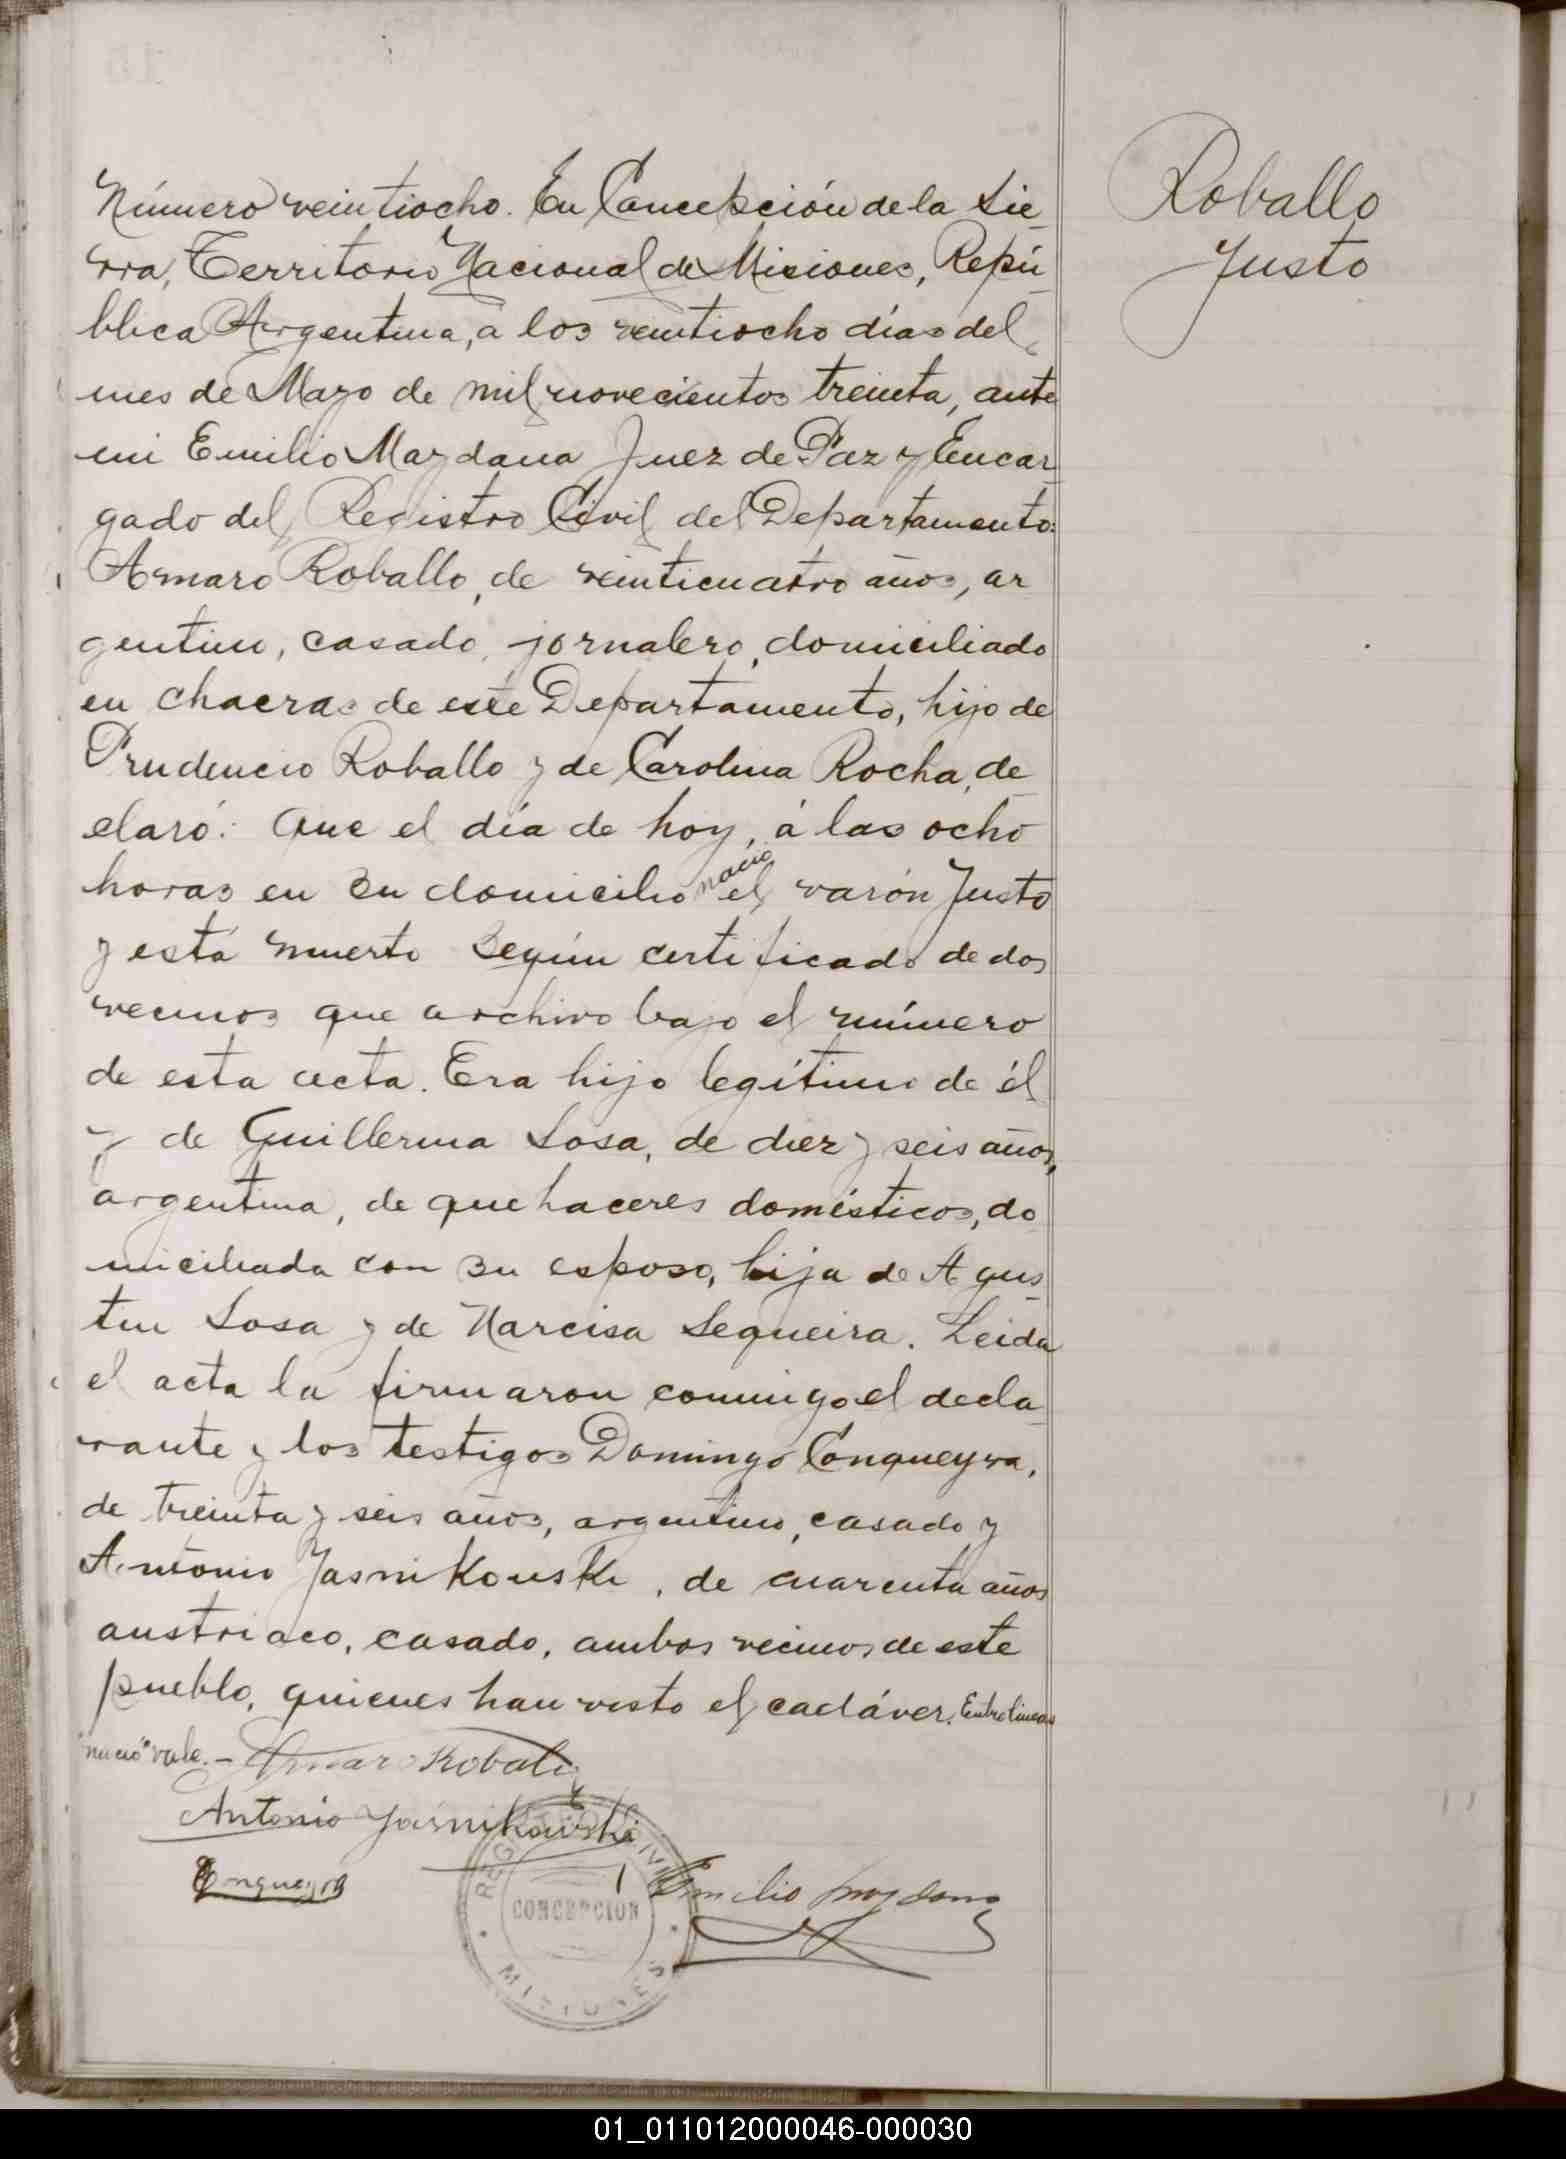 Roballo
Justo
Número veintiocho. En Concepción de la Sie-
rra, Territorio Nacional de Misiones, Repú-
blica Argentina, a los veintiocho días del
mes de Mayo de mil novecientos treinta, ante
mi Emilio Maydana Juez de Paz y Encar-
gado del Registro Civil del Departamento:
Amaro Roballo, de veinticuatro años, ar
gentino, casado, jornalero, domiciliado
en chacras de este Departamento, hijo de
Prudencio Roballo y de Carolina Rocha, de-
claró: Que el día de hoy, á las ocho
horas en su domicilio nació el varón Justo
y está muerto según certificado de dos
vecinos que archivo bajo el número
de esta acta. Era hijo legítimo de él
y de Guillerma Sosa, de diez y seis años,
argentina, de quehaceres domésticos, do
miciliada con su esposo, hija de Agus-
tin Sosa y de Narcisa Sequeira. Leida
el acta la firmaron conmigo el decla-
rante y los testigos Domingo Conqueyra,
de treinta y seis años, argentino, casado y
Antonio Jasnikouski, de cuarenta años
austriaco, casado, ambos vecinos de este
pueblo, quienes han visto el cadáver. Entre lineas
"nació" vale.- Amaro Roballo
Antonio Jasnikowski
Conqueyra
Emilio Maydana
REGISTRO CIVIL
CONCEPCIÓN
MISIONES
01_011012000046-000030